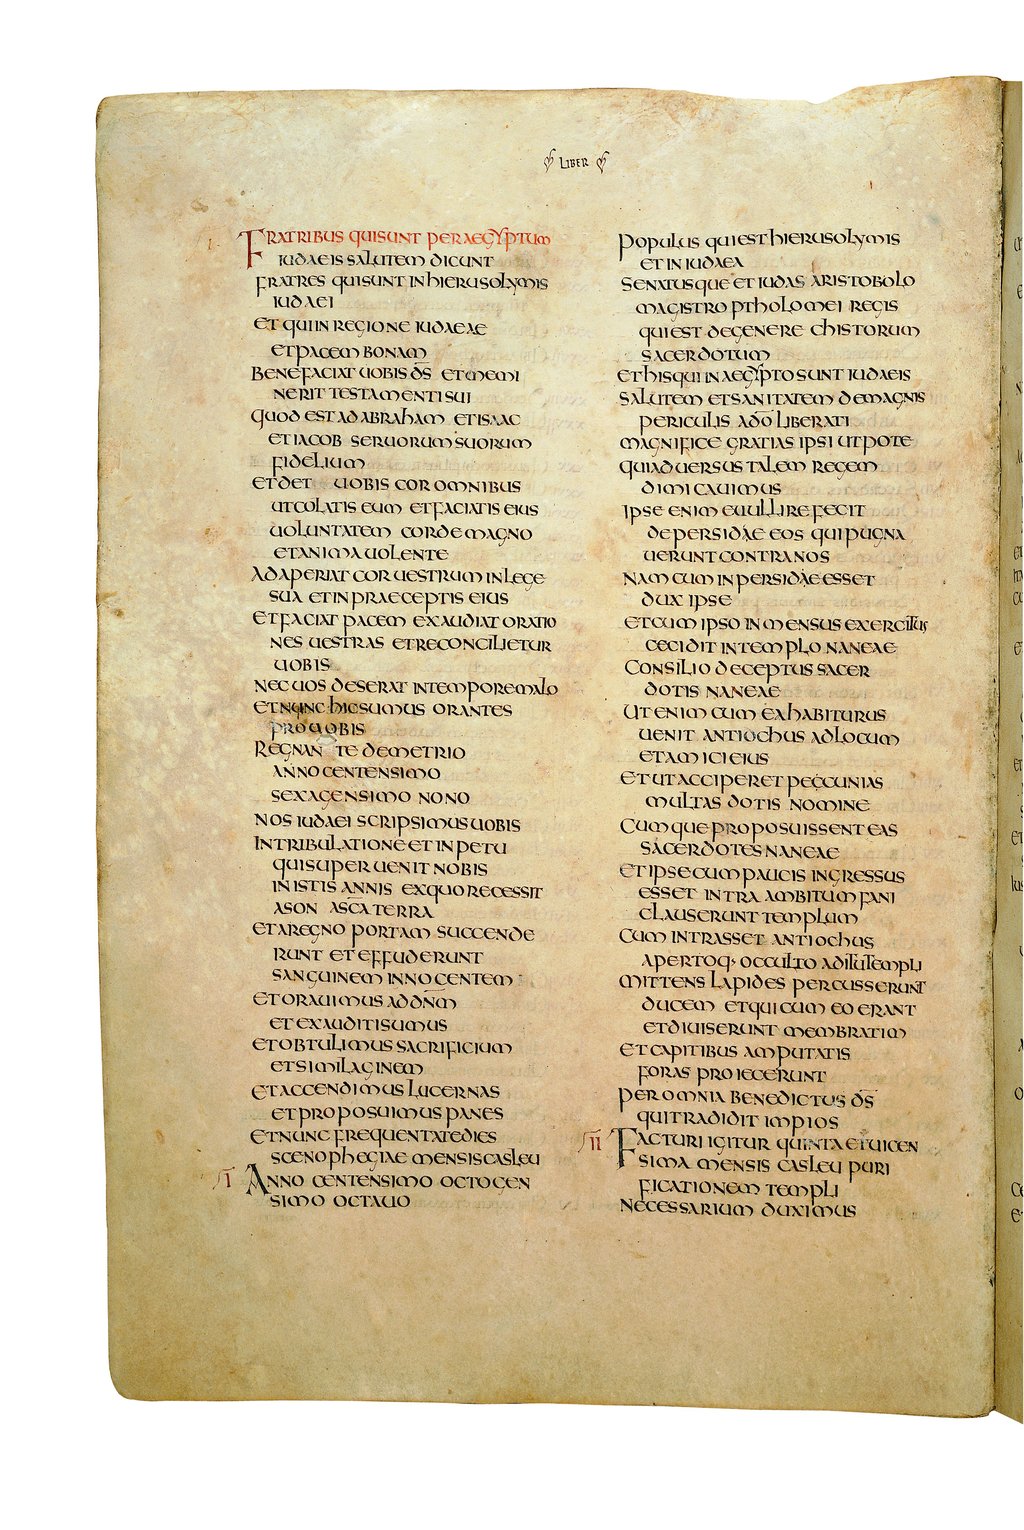 LIBER
I
FRATRIBUS QUI SUNT PER AEGYPTUM
IUDAEIS SALUTEM DICUNT
FRATRES QUI SUNT IN HIERUSOLYMIS
IUDAEI
ET QUI IN REGIONE IUDAEAE
ET PACEM BONAM
BENEFACIAT UOBIS D̅S̅ ET MEMI
NERIT TESTAMENTI SUI
QUOD EST AD ABRAHAM ET ISAAC
ET IACOB SERUORUM SUORUM
FIDELIUM
ET DET UOBIS COR OMNIBUS
UT COLATIS EUM ET FACIATIS EIUS
UOLUNTATEM CORDE MAGNO
ET ANIMA UOLENTE
ADAPERIAT COR UESTRUM IN LEGE
SUA ET IN PRAECEPTIS EIUS
ET FACIAT PACEM EXAUDIAT ORATIO
NES UESTRAS ET RECONCILIETUR
UOBIS
NEC UOS DESERAT IN TEMPORE MALO
ET NUNC HIC SUMUS ORANTES
PRO UOBIS
REGNANTE DEMETRIO
ANNO CENTENSIMO
SEXAGENSIMO NONO
NOS IUDAEI SCRIPSIMUS UOBIS
IN TRIBULATIONE ET INPETU
QUI SUPERUENIT NOBIS
IN ISTIS ANNIS EX QUO RECESSIT
IASON A SC̅A TERRA
ET A REGNO PORTAM SUCCENDE
RUNT ET EFFUDERUNT
SANGUINEM INNOCENTEM
ET ORAUIMUS AD D̅N̅M
ET EXAUDITI SUMUS
ET OBTULIMUS SACRIFICIUM
ET SIMILAGINEM
ET ACCENDIMUS LUCERNAS
ET PROPOSUIMUS PANES
ET NUNC FREQUENTATE DIES
SCENOPHEGIAE MENSIS CASLEU
II
ANNO CENTENSIMO OCTOGEN
SIMO OCTAUO
POPULUS QUI EST HIERUSOLYMIS
ET IN IUDAEA
SENATUSQUE ET IUDAS ARISTOBOLO
MAGISTRO PTHOLOMEI REGIS
QUI EST DE GENERE CHISTORUM
SACERDOTUM
ET HIS QUI IN AEGYPTO SUNT IUDAEIS
SALUTEM ET SANITATEM DE MAGNIS
PERICULIS A D̅O̅ LIBERATI
MAGNIFICE GRATIAS IPSI UTPOTE
QUI ADUERSUS TALEM REGEM
DIMICAUIMUS
IPSE ENIM EUULLIRE FECIT
DE PERSIDAE EOS QUI PUGNA
UERUNT CONTRA NOS
NAM CUM IN PERSIDAE ESSET
DUX IPSE
ET CUM IPSO INMENSUS EXERCITUS
CECIDIT IN TEMPLO NANEAE
CONSILIO DECEPTUS SACER
DOTIS NANEAE
UT ENIM CUM EA HABITURUS
UENIT ANTIOCHUS AD LOCUM
ET AMICI EIUS
ET UT ACCIPERET PECCUNIAS
MULTAS DOTIS NOMINE
CUMQUE PROPOSUISSENT EAS
SACERDOTES NANEAE
ET IPSE CUM PAUCIS INGRESSUS
ESSET INTRA AMBITUM FANI
CLAUSERUNT TEMPLUM
CUM INTRASSET ANTIOCHUS
APERTOQ· OCCULTO ADITU TEMPLI
MITTENS LAPIDES PERCUSSERUNT
DUCEM ET QUI CUM EO ERANT
ET DIUISERUNT MEMBRATIM
ET CAPITIBUS AMPUTATIS
FORAS PROIECERUNT
PER OMNIA BENEDICTUS D̅S̅
QUI TRADIDIT IMPIOS
III
FACTURI IGITUR QUINTA ET UICEN
SIMA MENSIS CASLEU PURI
FICATIONEM TEMPLI
NECESSARIUM DUXIMUS